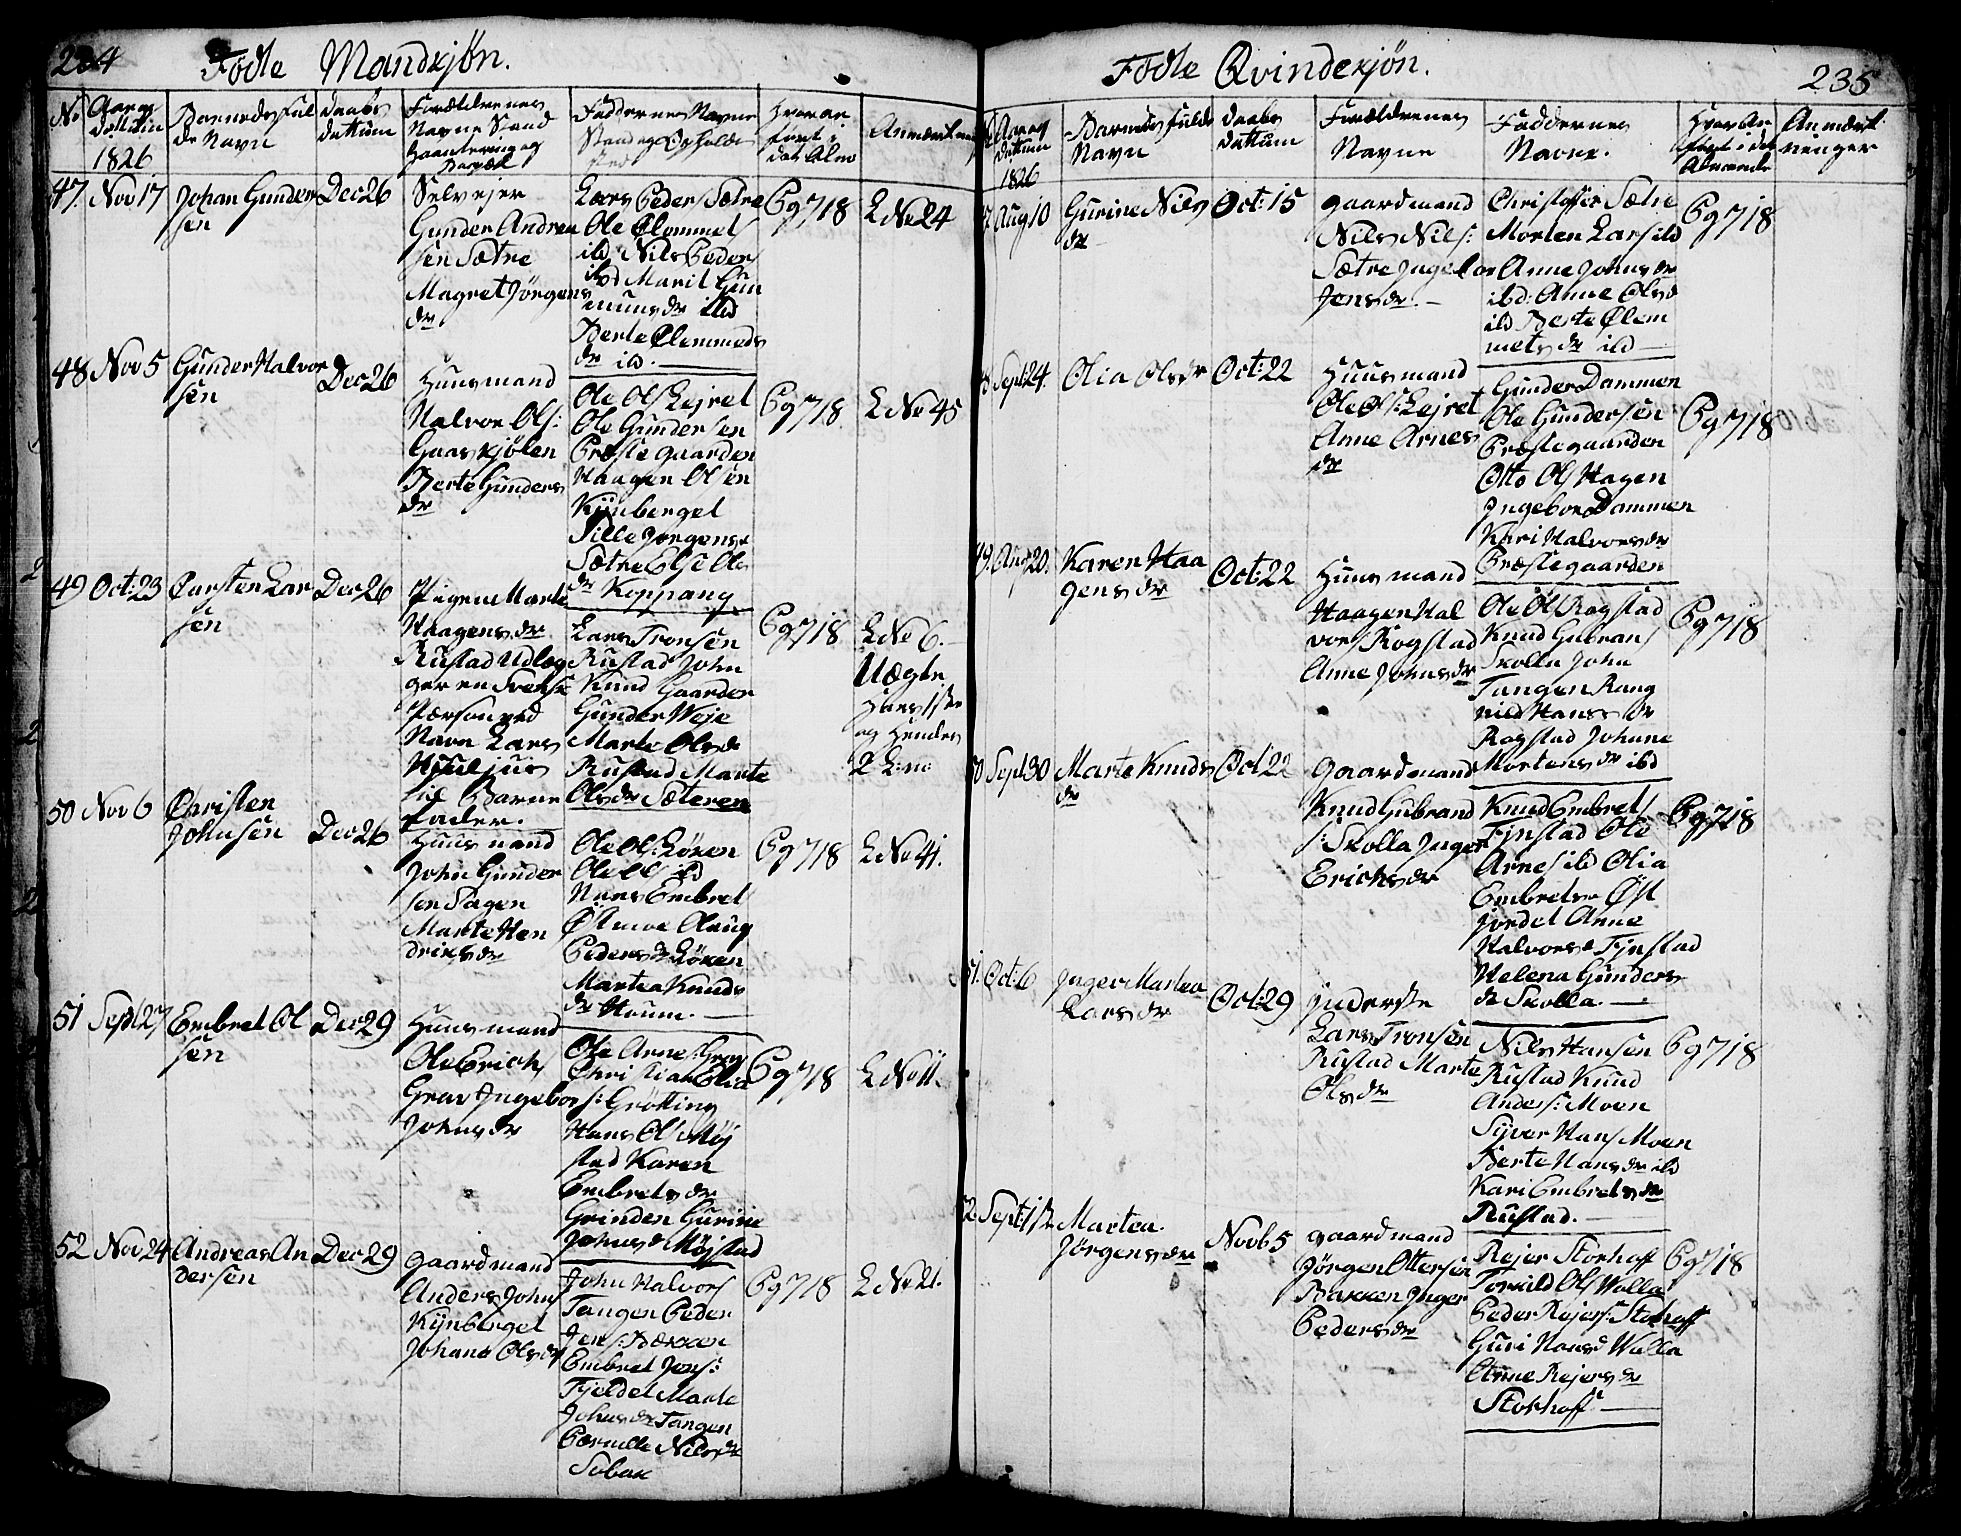 234
Fødte Mandkjøn.
No
Aar og
Dattum
1826
Barnedes ful
de Navn
Daabs
dattum
Forældrenes
Navne Stand
Haantering og
Faddernes Navne
Stand og Opholds
sted
Hvor an
ført i
det Alm
47
Nov 17
Johan Gunder
sen
Dec 26
Selvejer
Gunder Andrea
sen Sætre
Magret Jørgens
dr
Lars Peders Sætre
Ole Clommet
ibd Nils Peders
ibd Marit Gun
muns dr ibd
Berte Clemmeds
dr ibd.
Pg 718
L No 24
48
Nov 5
Gunder Halvor
sen
Dec 26
Huusmand
Halvor Ols:
Gaaskjølen
Berte Gunders
dr
Ole Ols Lejret
Ole Gundersen
Præstegaarden
Haagen Olsen
Kjnberget
Sille Jørgens dr
Sætre Else Ols
dr Koppang
Pg 718.
L No 45
49
Oct: 23
Carsten Lar
sen
Dec 26
Pigen Marte
Haagens dr
Rustad Udlæg
ger en Svensk
Person ved
Navn Lars
til Barne
fader.
Lars Tronsen
Rustad John
Knud Gaarder
Gunder Weje
Marte Ols dr
Rustad Marte
Ols dr Sæteren
Pg 718
L No 6.
Uægte
Hans 1ste
og Hendes
2 L:m:
50
Nov 6
Christen
Johnsen
Dec 26
Huusmand
John Gunder
sen Sagen
Marte Hen
driks dr
Ole Ols: Løken
Ole Ols ibd
Hans Embret
Østmoe Olaug
Peders dr Løken
Martea Knuds
dr Houm.
Pg 718
L No 41.
51
Sept 27
Embret Ol
sen
Dec 29
Huusmand
Ole Erichs
Grav Ingebor
Johns dr
Ole Arnes: Grav
Christian Olia
s: Grøtting
Hans Ols Møj
stad Karen
Embrets dr
Grinden Gurine
Johns dr Møjstad
Pg 718
L No 11.
52
Nov 24
Andreas An
dersen
Dec 29
gaardmand
Anders Johns
Kjnberget
Johane Ols dr
John Halvors
Tangen Peder
Jens: Bækken
Embret Jens:
Fjeldet Marte
Johns dr Tangen
Pernille Nils dr
Pg 718
L No 21.
235
Fødte Qvindekjøn.
Aar og
Dattum
1826
Barnets fulde
Navn
Daabs
dattum
Forældrenes
Navne
Faddernes
Navne.
Hvor An
ført i det
Almindel
Anmærk
ninger
Aug 10
Gurine Nils
dr
Oct: 15
gaardmand
Nils Nils:
Sætre Ingebor
Jens dr
Christoffer Sætre
Morten Lars ibd
Anne Johns dr
ibd: Anne Ols dr
ibd Berte Clem
mets dr ibd
Pg 718
Sept 24.
Olia Ols dr
Oct: 22
Huusmand
Ole Ols: Lejret
Anne Arnes
dr
Gunder Dammen
Ole Gundersen
Præstegaarden
Otto Ols Hagen
Ingebor Dammen
Kari Halvors dr
Præstegaarden
Pg 718
49.
Aug 20.
Karen Haa
gens dr
Oct: 22
Huusmand
Haagen Hal
vors Rogstad
Anne Johns dr
Ole Ols Rogstad
Knud Gubrans
Skolla John
Tangen Rang
nild Hans dr
Rogstad Johane
Mortens dr ibd
Pg 718
50
Sept 30
Marte Knuds
dr
Oct 22
gaardmand
Knud Gubrand
s: Skolla Inger
Erichs dr
Knud Embrets
Tjnstad Ole
Arnes ibd Olia
Embrets dr Øst
jordet Anne
Halvors dr Tjnstad
Helena Gunders
dr Skolla.
Pg 718
51.
Oct: 6
Inger Martea
Lars dr
Oct: 29
Inderste
Lars Tronsen
Rustad Marte
Ols dr
Nils Hansen
Rustad Knud
Anders: Moen
Syver Hans Moen
Berte Hans dr ibd
Kari Embrets dr
Rustad.
Pg 718
52
Sept: 1ste
Martea
Jørgens dr
Novb 5
gaardmand
Jørgen Ottersen
Bakken Inger
Peders dr
Rejer Storhoff
Torsild Ols Wolla
Peder Rejers: Storhoff
Guri Hans dr Wolla
Anne Rejers dr
Storhoff
Pg 718